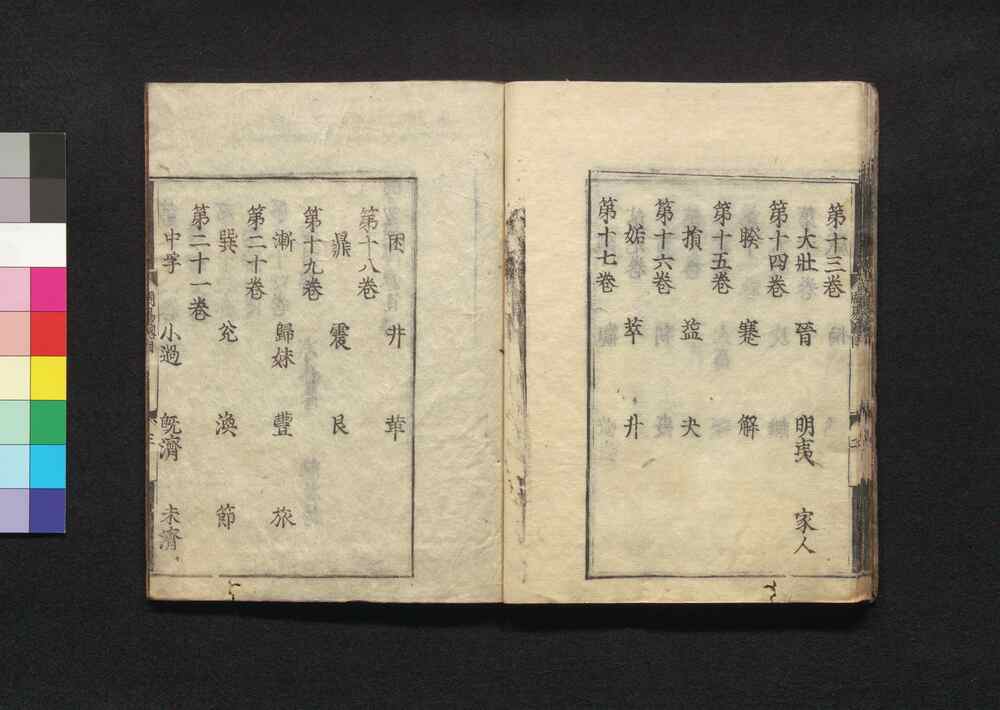 第十三巻
大壯 晉 明夷 家人
第十四巻
睽 蹇 解
第十五巻
損 益 夬
第十六巻
姤 萃 升
第十七巻
困 井 革
第十八巻
鼎 震 艮
第十九巻
漸 歸妹 豐 旅
第二十巻
巽 兌 渙 節
第二十一巻
中孚 小過 既濟 未濟